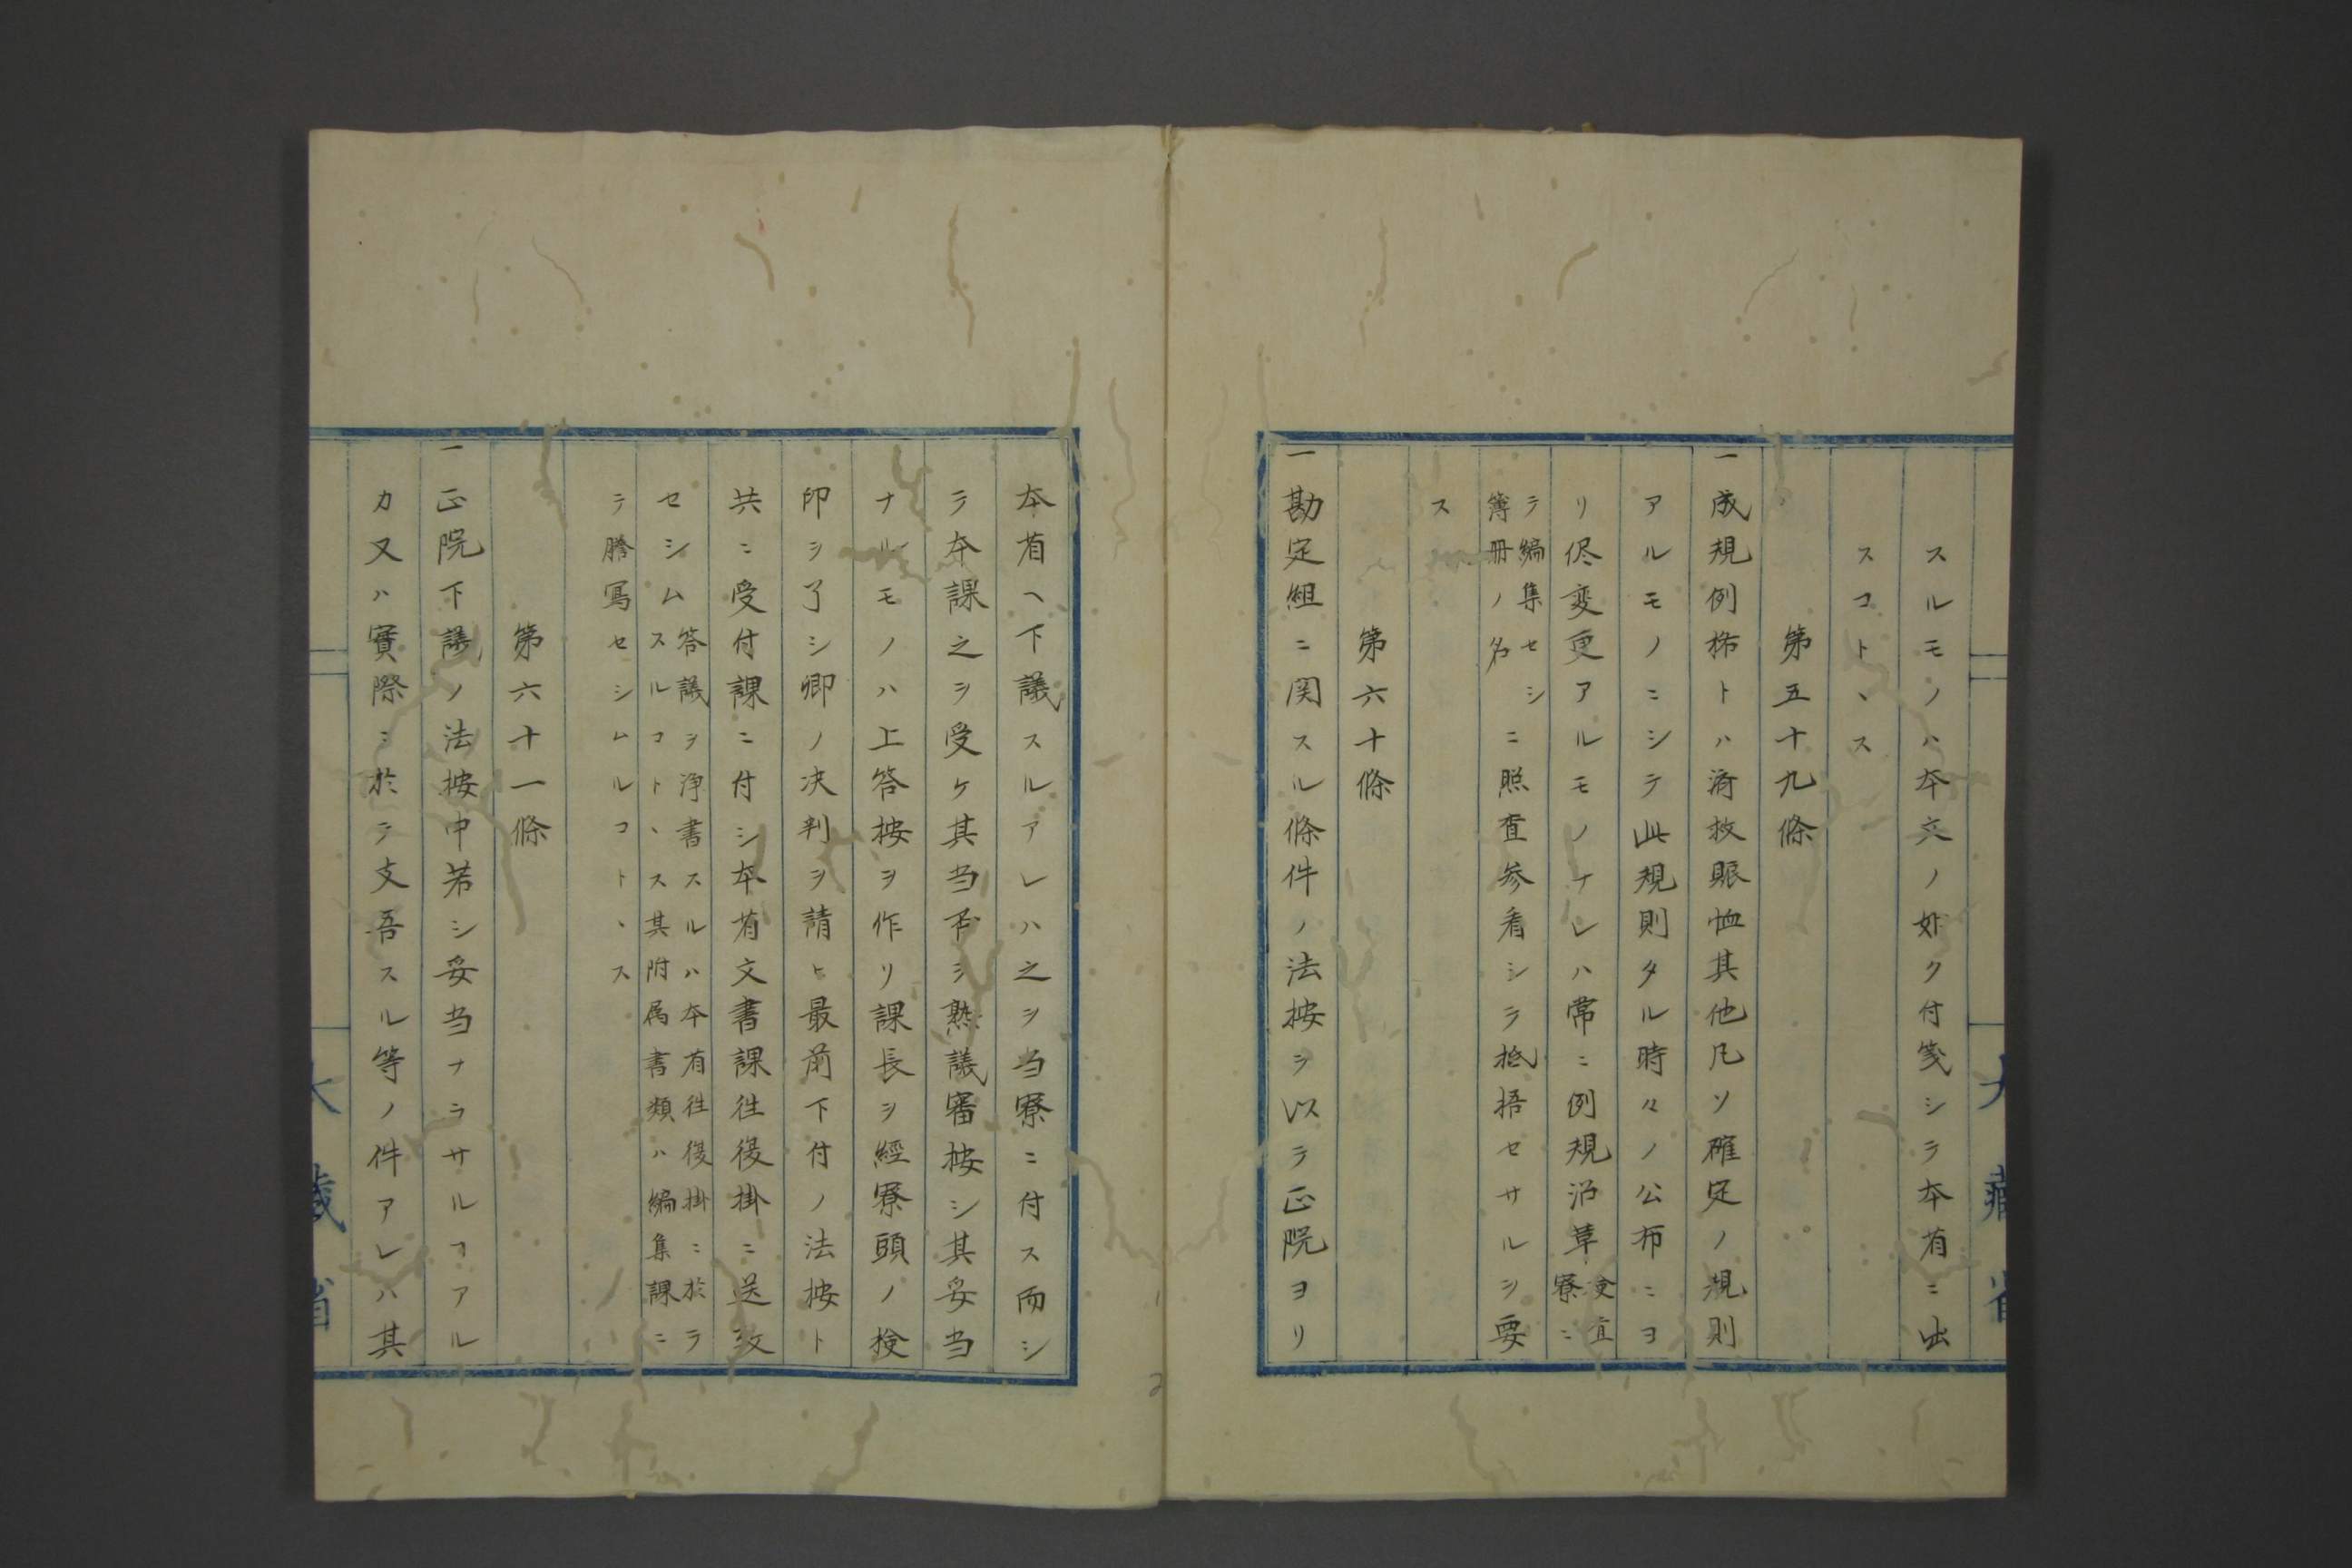 スルモノハ本文ノ如ク付箋シテ本省ニ出
スコトヽス
第五十九條
一成規例格トハ済救賑恤其他凡ソ確定ノ規則
アルモノニシテ此規則タル時々ノ公布ニヨ
リ侭変更アルモノナレハ常ニ例規沿革検査
寮ニ
テ編集セシ
簿冊ノ名ニ照査参看シテ抵捂セサルヲ要
ス
第六十條
一勘定組ニ関スル條件ノ法按ヲ以テ正院ヨリ
本省ヘ下議スルアレハ之ヲ当寮ニ付ス而シ
テ本課之ヲ受ケ其当否ヲ熟議審按シ其妥当
ナルモノハ上答按ヲ作リ課長ヲ經寮頭ノ検
印ヲ了シ卿ノ决判ヲ請ヒ最前下付ノ法按ト
共ニ受付課ニ付シ本省文書課往復掛ニ送致
セシム答議ヲ浄書スルハ本省往復掛ニ於テ
スルコトヽス其附属書類ハ編集課ニ
テ謄寫セシムルコトヽス
第六十一條
一正院下議ノ法按中若シ妥当ナラサルヿアル
カ又ハ實際ニ於テ支吾スル等ノ件アレハ其
大藏省
大藏省